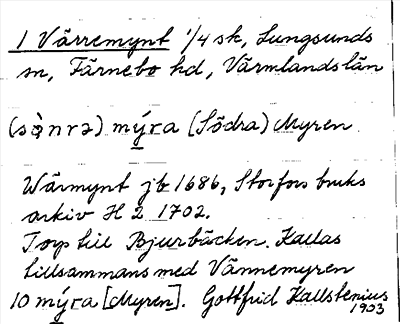 1 Värremynt 1/4 sk, Lungsunds
sn, Färnebo hd, Värmlands län
(sònrə) mýra (Södra) Myren
Wärmynt jb 1686, Storfors bruks
arkiv H 2 1702.
Torp till Bjurbäcken. Kallas
tillsammans med Vännemyren
10 mýra [Myren]. Gottfrid Kallstenius
1903